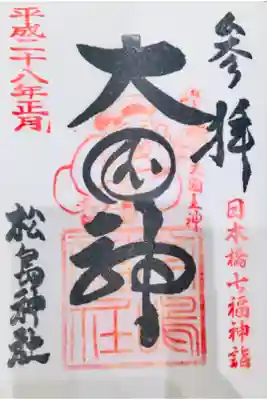 參拝
日本橋七福神詣
大国神
平成二十八年正月
松島神社